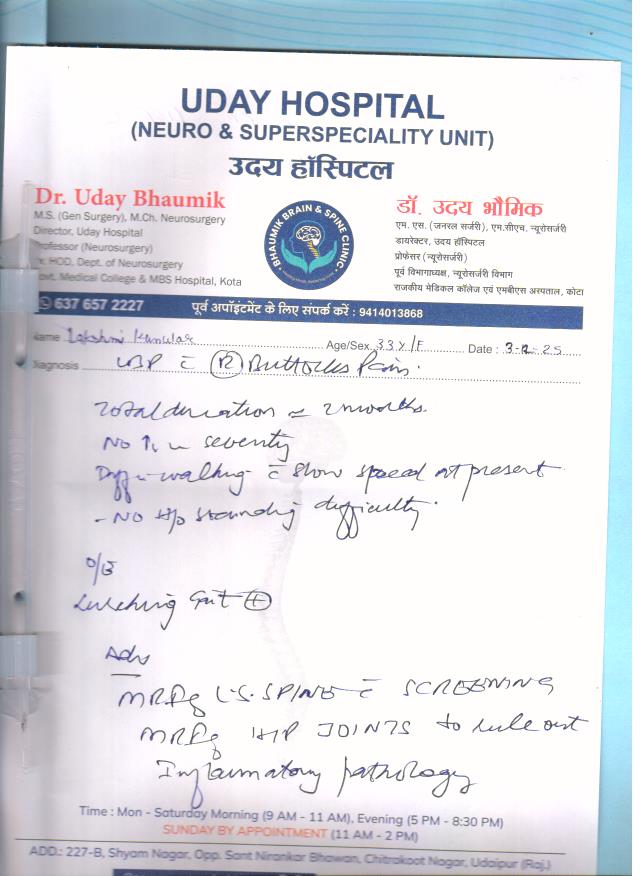 UDAY HOSPITAL
(NEURO & SUPERSPECIALITY UNIT)
उदय हॉस्पिटल
Dr. Uday Bhaumik
M.S. (Gen Surgery), M.Ch. Neurosurgery
Director, Uday Hospital
Professor (Neurosurgery)
HOD, Dept. of Neurosurgery
Govt. Medical College & MBS Hospital, Kota
BHAUMIK BRAIN & SPINE CLINIC
डॉ. उदय भौमिक
एम. एस. (जनरल सर्जरी), एम.सीएच. न्यूरोसर्जरी
डायरेक्टर, उदय हॉस्पिटल
प्रोफेसर (न्यूरोसर्जरी)
पूर्व विभागाध्यक्ष, न्यूरोसर्जरी विभाग
राजकीय मेडिकल कॉलेज एवं एमबीएस अस्पताल, कोटा
637 657 2227 पूर्व अपॉइंटमेंट के लिए संपर्क करें : 9414013868
Name Lakshmi Age/Sex 33Y/F Date : 3-2-25
Diagnosis LBP c̄ (R) Buttocks Pain.
Total duration = 2 months.
No ↑ in severity
Diff in walking c̄ slow speed at present
- No H/o standing difficulty.
O/E
Lurching Gait (+)
Adv
MRI of L.S. SPINE c̄ SCREENING
MRI of HIP JOINTS to rule out
Inflammatory pathology
Time : Mon - Saturday Morning (9 AM - 11 AM), Evening (5 PM - 8:30 PM)
SUNDAY BY APPOINTMENT (11 AM - 2 PM)
ADD.: 227-B, Shyam Nagar, Opp. Sant Nirankar Bhawan, Chitrakoot Nagar, Udaipur (Raj.)